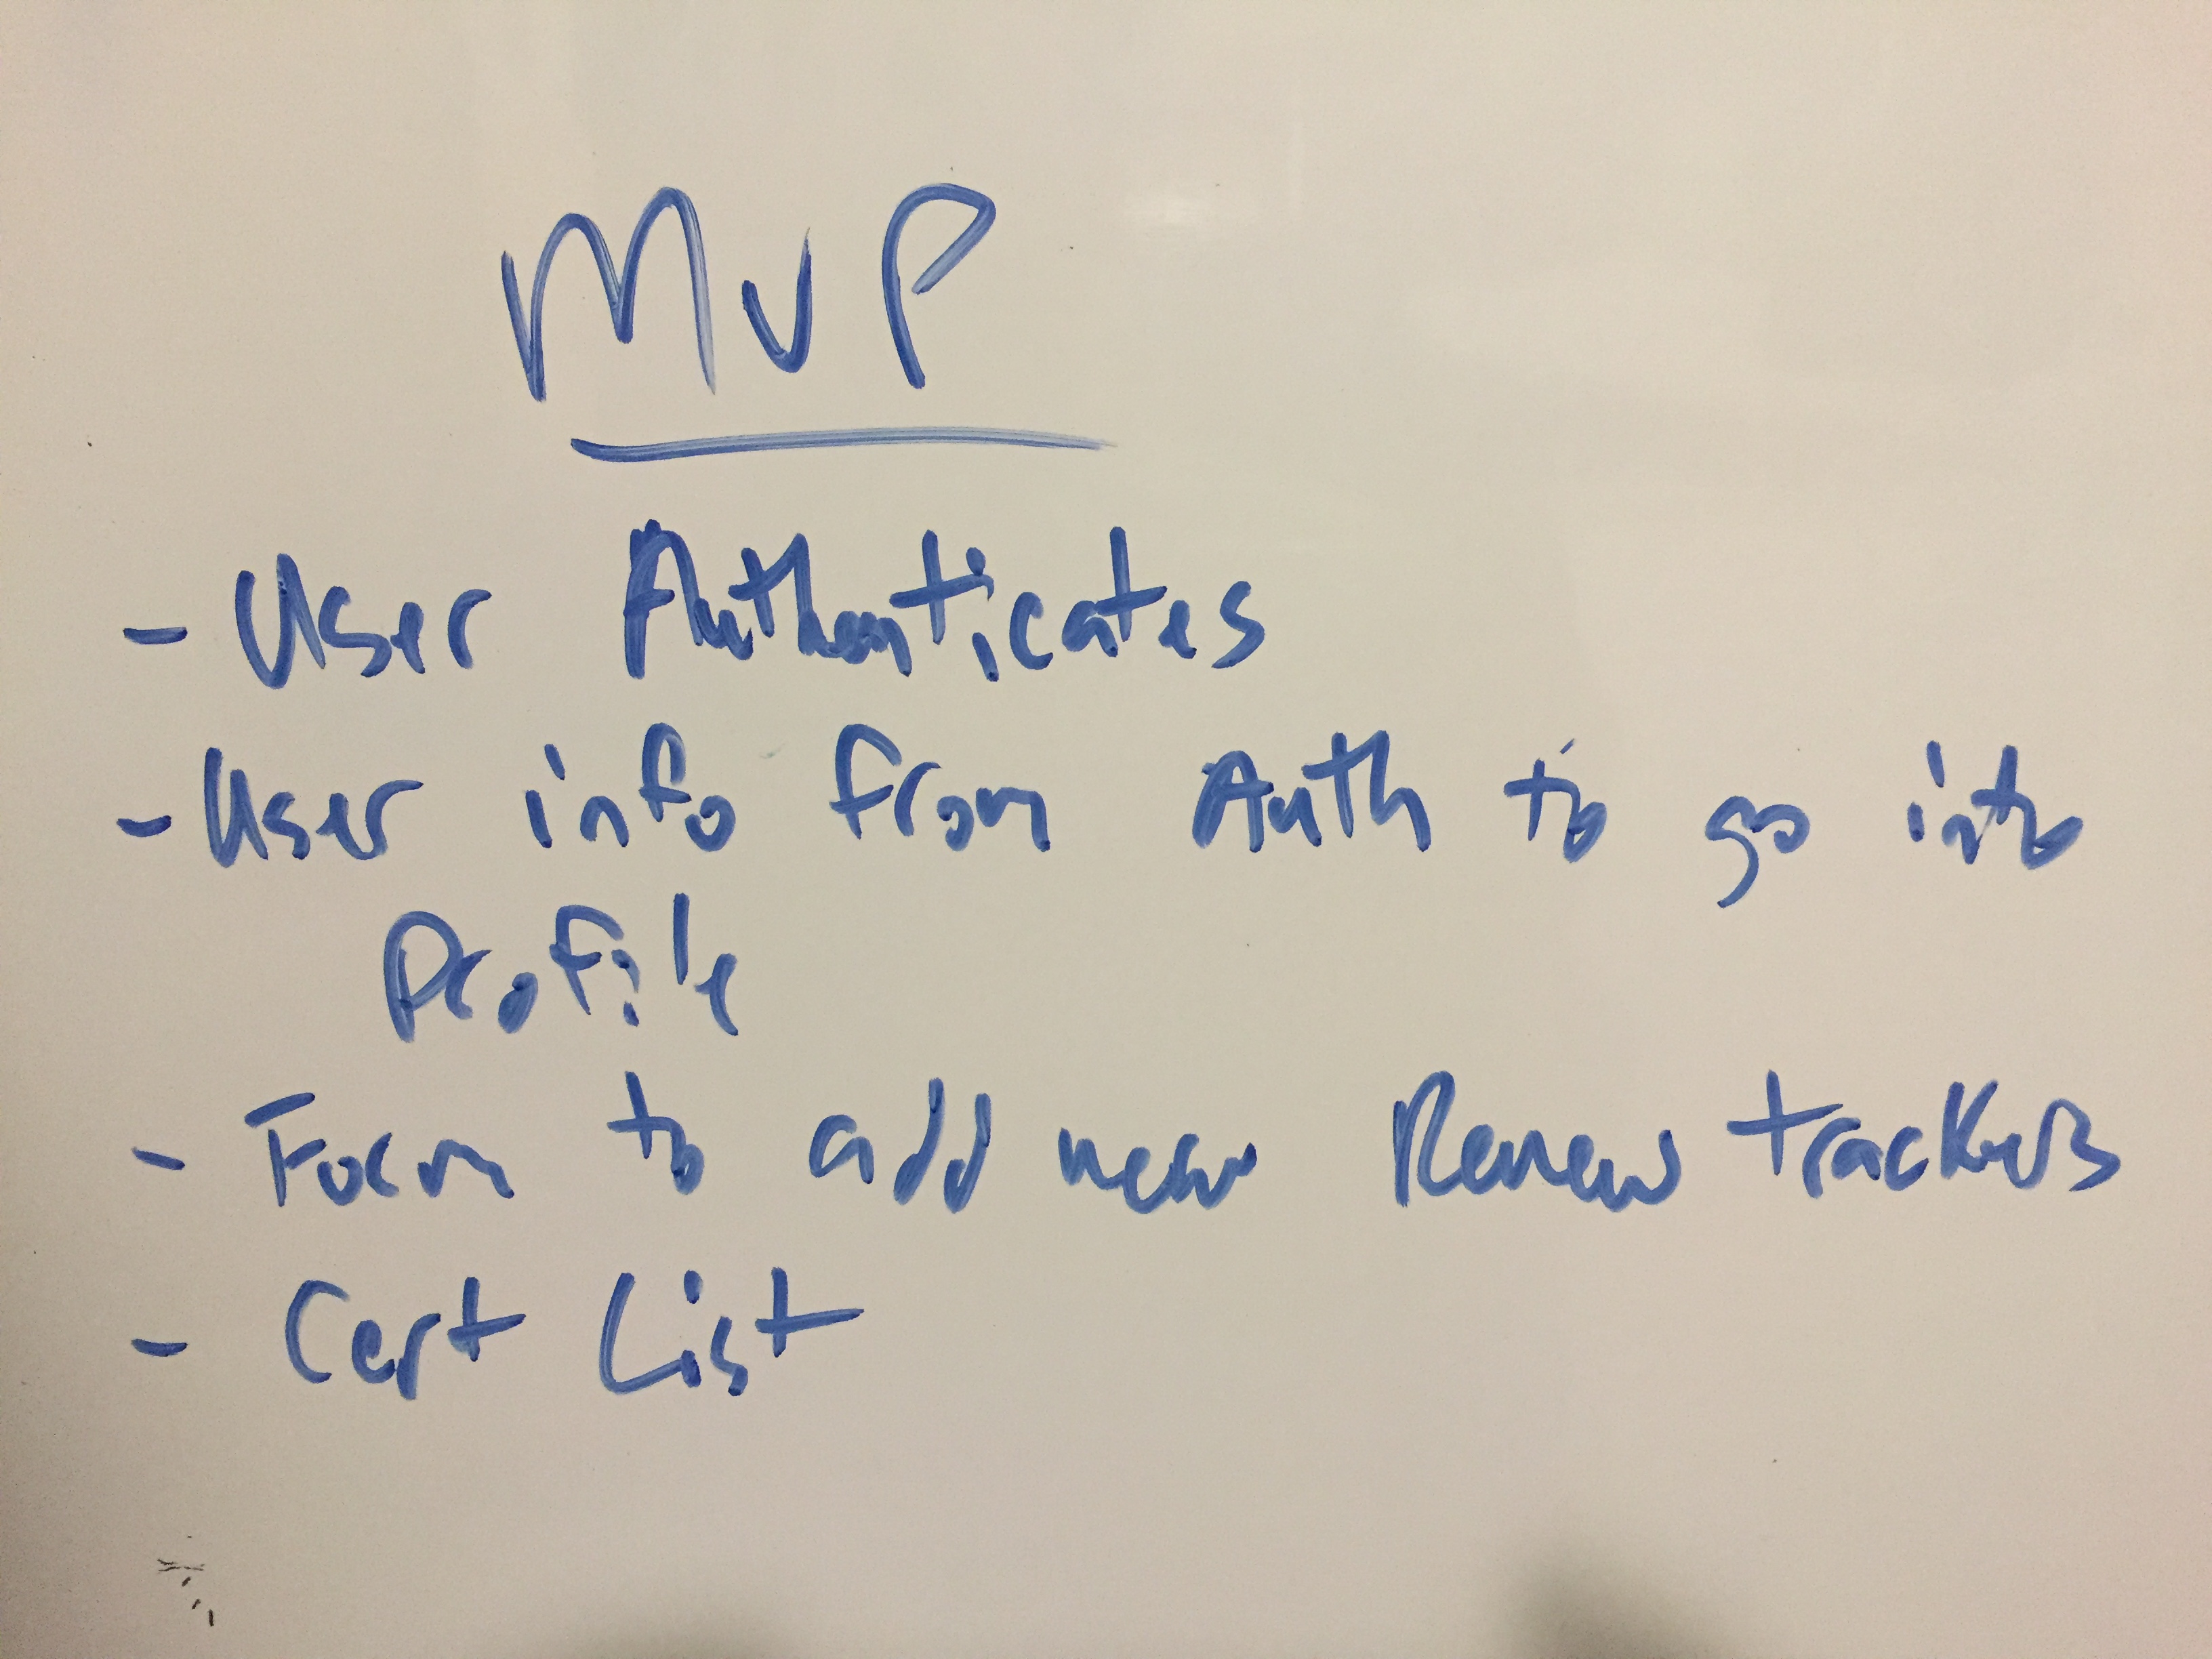 MVP
- User Authenticates
- User info from Auth to go into
Profile
- Form to add new Renew trackers
- Cert List